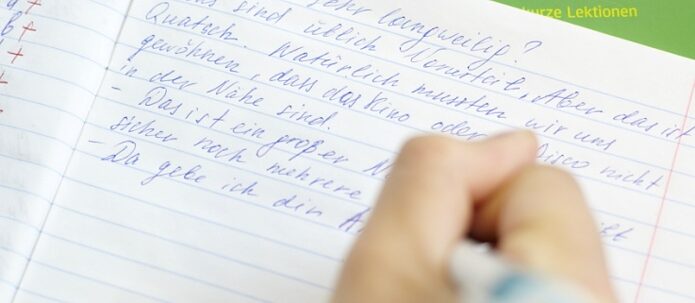 kurze Lektionen
sehr langweilig?
sind üblich Vorurteile, Aber das ist
Quatsch. Natürlich mussten wir uns
gewöhnen, dass das Kino oder Disco nicht
in der Nähe sind.
- Das ist ein großer
sicher noch mehrere
- Da gebe ich dir